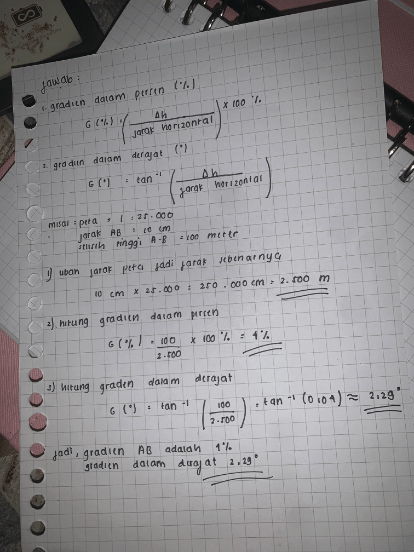 jawab :
1. gradien dalam persen (%)
G (%) = ( Δh / jarak horizontal ) x 100 %
2. gradien dalam derajat (°)
G (°) = tan⁻¹ ( Δh / jarak horizontal )
misal : peta = 1 : 25.000
jarak AB = 10 cm
selisih tinggi A-B = 100 meter
1) ubah jarak peta jadi jarak sebenarnya
10 cm x 25.000 = 250.000 cm = 2.500 m
2) hitung gradien dalam persen
G (%) = 100 / 2.500 x 100 % = 4%
3) hitung gradien dalam derajat
G (°) = tan⁻¹ ( 100 / 2.500 ) = tan⁻¹ (0,04) ≈ 2,29°
jadi, gradien AB adalah 4%
gradien dalam derajat 2,29°